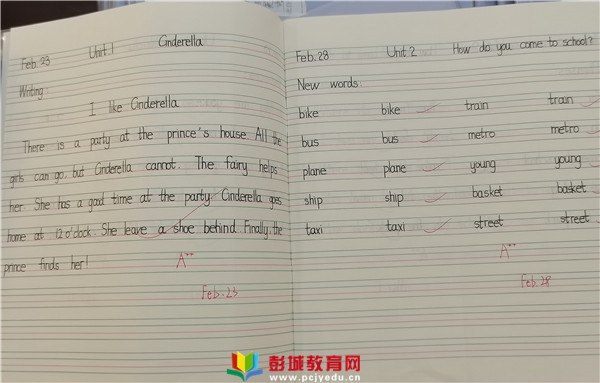 Feb. 23 Unit 1 Cinderella
Writing:
I like Cinderella
There is a party at the prince's house. All the
girls can go, but Cinderella cannot. The fairy helps
her. She has a good time at the party. Cinderella goes
home at 12 o'clock. She leave a shoe behind. Finally, the
prince finds her!
A++
Feb. 23
Feb. 28 Unit 2 How do you come to school?
New words:
bike bike train train
bus bus metro metro
plane plane young young
ship ship basket basket
taxi taxi street street
A++
Feb. 28
彭城教育网
www.pcjyedu.cn